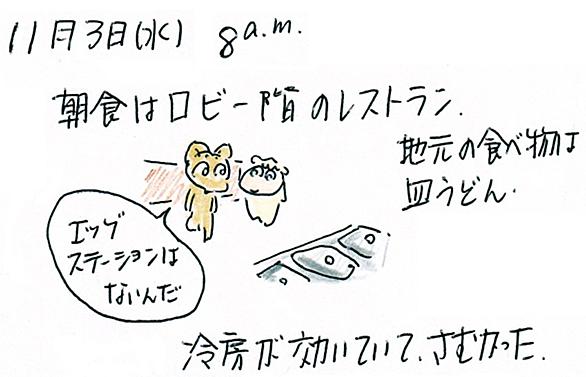 11月3日(水) 8a.m.
朝食はロビー階のレストラン.
地元の食べ物は
皿うどん.
エッグ
ステーションは
ないんだ
冷房が効いていて、さむかった.